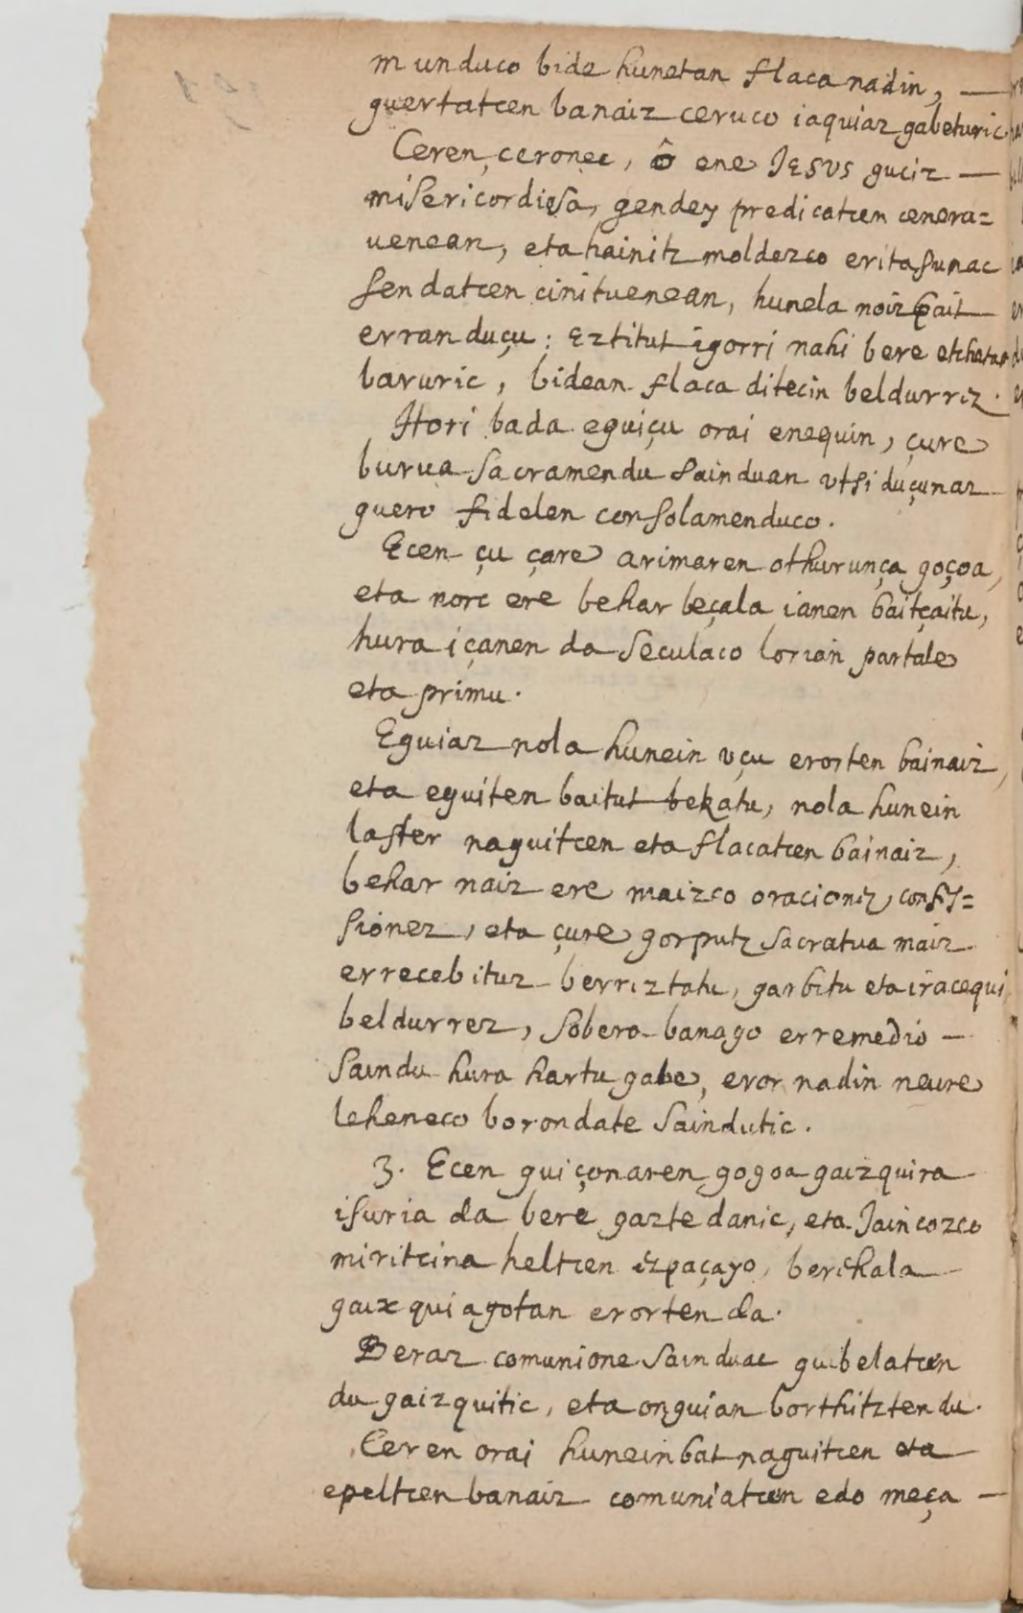 munduco bide hunetan flaca nadin, —
guertatcen banaiz ceruco iaquiaz gabeturic
Ceren, ceronec, ô ene JESVS guciz —
misericordiosa, gendey predicatcen cenera=
uenean, eta hainitz moldezco eritasunac
sendatcen cinituenean, hunela noizbait
erran duçu: Eztitut igorri nahi bere etchetan
baruric, bidean flaca ditecin beldurrez.
Hori bada eguiçu orai enequin, çure
burua Sacramendu sainduan vtsi duçunaz
guero fidelen consolamenduco.
Ecen çu çare arimaren othurunça goçoa,
eta norc ere behar beçala ianen baitçaitu,
hura içanen da seculaco lorian partale
eta primu.
Eguiaz nola hunein vçu erorten bainaiz,
eta eguiten baitut bekatu, nola hunein
laster naguitcen eta flacatcen bainaiz,
behar naiz ere maizco oracionez, confes=
sionez, eta çure gorputz sacratua maiz
errecebituz berriztatu, garbitu eta iracequi
beldurrez, sobera banago erremedio —
saindu hura hartu gabe, eror nadin neure
leheneco borondate saindutic.
3. Ecen guiçonaren gogoa gaizquira
isuria da bere gaztedanic, eta Jaincozco
miritcina heltcen ezpaçayo, berehala
gaixquiagotan erorten da.
Beraz comunione sainduac guibelatcen
du gaizquitic, eta onguian borthitzten du.
Ceren orai hunein bat naguitcen eta
epeltcen banaiz comuniatcen edo meça —